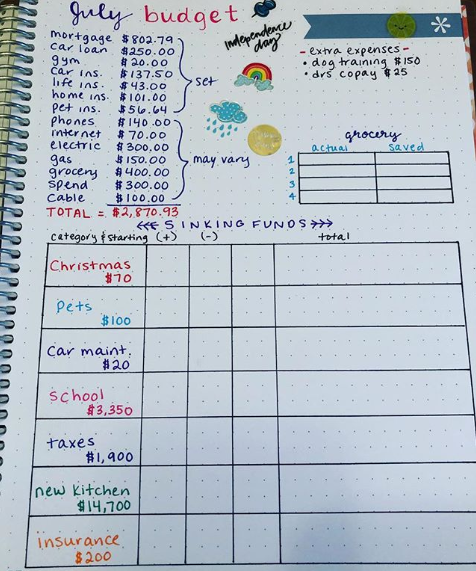 July budget
mortgage $802.79
car loan $250.00
gym $20.00
car ins. $137.50
life ins. $43.00
home ins. $101.00
pet ins. $56.64
set
phones $140.00
internet $70.00
electric $300.00
gas $150.00
grocery $400.00
spend $300.00
cable $100.00
may vary
TOTAL = $2,870.93
Independence day
- extra expenses -
• dog training $150
• drs copay $25
grocery
actual saved
1
2
3
4
SINKING FUNDS
category & starting (+) (-) total
Christmas
$70
pets
$100
car maint.
$20
school
$3,350
taxes
$1,900
new kitchen
$14,700
insurance
$200